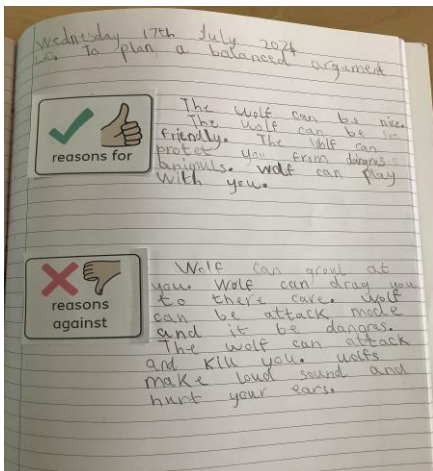 Wednisday 17th July 2024
L.o. To plan a balanced argument
reasons for
The wolf can be nice.
The wolf can be
friendly. The wolf can
protet you from dangras
animuls. wolf can play
with you.
reasons
against
Wolf can growl at
you. Wolf can drag you
to there care. wolf
can be attack mode
and it be dangras.
The wolf can attack
and kill you. wolfs
make loud sound and
hurt your ears.